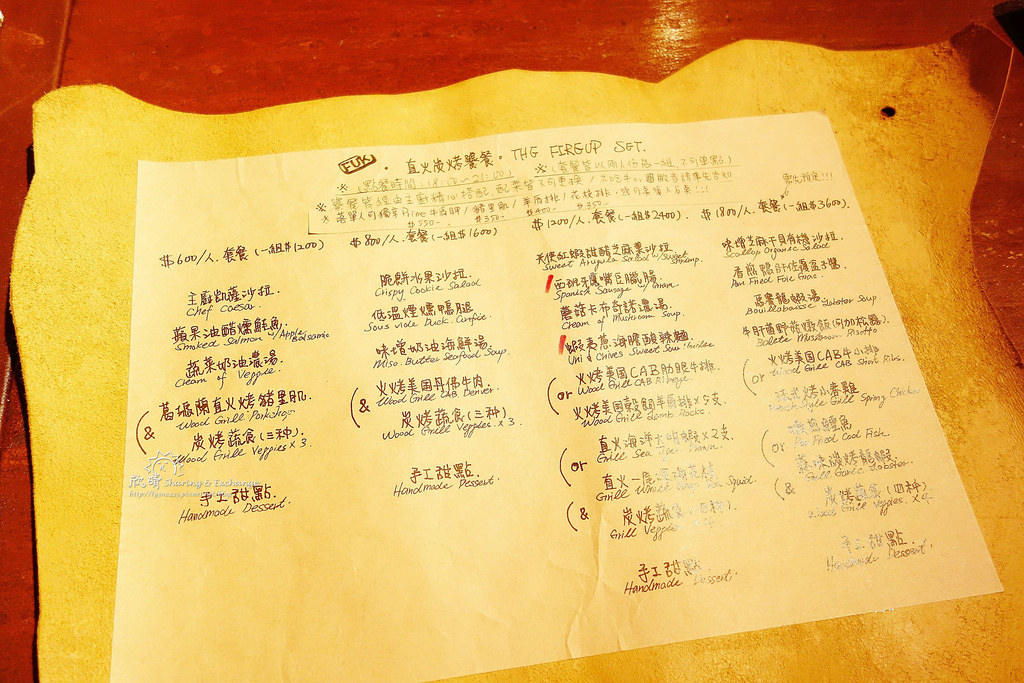 FUK
直火炭烤饗餐. THE FIREUP SET.
※ (點餐時間: 18:00~21:00) ※ (套餐皆以兩人份為一組, 不可單點)
※ 套餐皆經由主廚精心搭配, 配菜皆不可更換
※ 落單人可獨享 Prime
$550 $350 $400 $350
需先預定!!!
$600/人. 套餐 (一組$1200)
主廚凱薩沙拉.
Chef Caesar.
蘋果油醋燻鮭魚.
Smoked Salmon w/Apple Balsamic
蔬菜奶油濃湯.
Cream of Veggie.
葛坡蘭直火烤豬里肌.
Wood Grill Porkchop
&
炭烤蔬食 (三種).
Wood Grill Veppies × 3.
手工甜點.
Handmade Dessert.
$800/人. 套餐 (一組$1600)
脆餅水果沙拉.
Crispy Cookie Salad
低溫煙燻鴨腿.
Sous vide Duck Confise.
味增奶油海鮮湯.
Miso. Butter Seafood Soup.
火烤美國丹佛牛肉.
Wood Grill CAB. Denver
&
炭烤蔬食 (三種).
Wood Grill Veppies × 3
手工甜點.
Handmade Dessert.
$1200/人. 套餐 (一組$2400).
天使紅蝦甜醋芝麻葉沙拉.
Sweet Arugula Salad w/Sweet Shrimp.
西班牙鷹嘴豆臘腸.
Spanish Sausage w/
蘑菇卡布奇諾濃湯.
Cream of Mushroom Soup.
蝦夷蔥海膽酸辣麵
Uni & Chives Sweet Sour
火烤美國CAB肋眼牛排.
Wood Grill CAB Ribeye.
or
火烤美國穀飼羊肩排×5支.
Wood Grill Lamb Racks.
直火海洋大明蝦×2支.
Grill Sea Tiger Prawn.
or
直火一
Grill Whole Squid.
&
炭烤蔬食 (四種).
Grill Veppies × 4
手工甜點
Handmade Dessert.
$1800/人. 套餐 (一組$3600).
味增芝麻干貝有機沙拉.
Scallop Organic Salad
香煎鴨肝佐覆盆子醬.
Pan Fried Foie Gras.
馬賽龍蝦湯.
Bouillabaisse Lobster Soup
牛肝菌野菇燉飯
Bolete Mushroom Risotto
火烤美國CAB牛小排
Wood Grill CAB Short Ribs.
or
烤小春雞
Style Grill Spring Chicken
鱈魚
Pan Fried Cod Fish.
or
蒜味碳烤龍蝦.
Grill Garlic Lobster.
&
炭烤蔬食 (四種)
Wood Grill Veppies × 4.
手工甜點.
Handmade Dessert.
欣晴 Sharing & Exchange